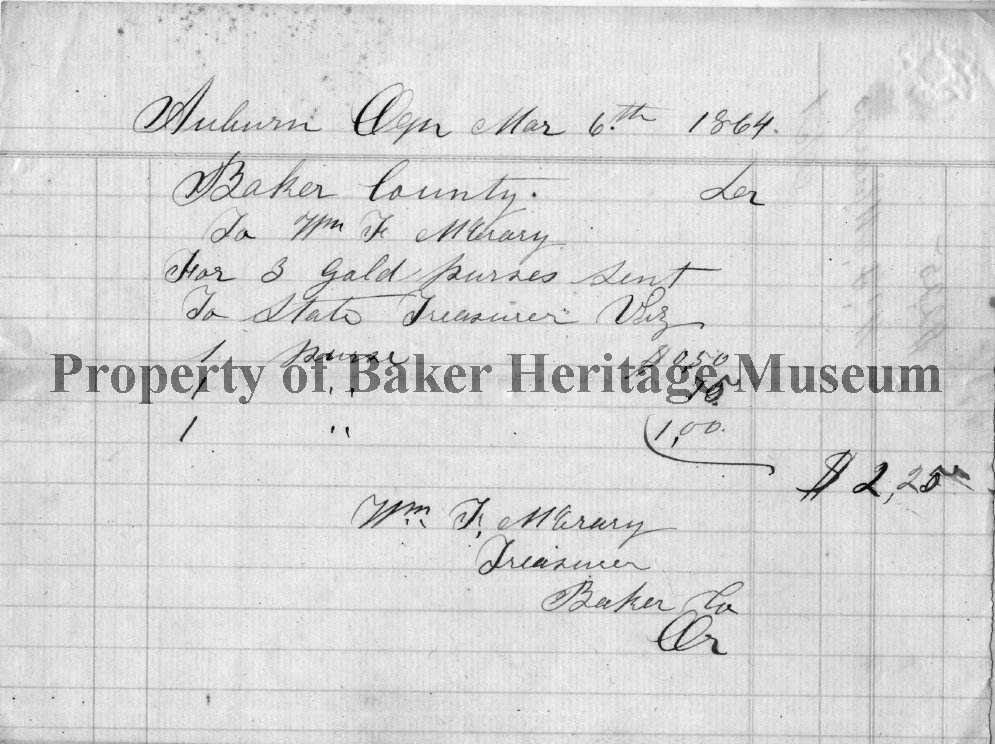 Auburn Ogn Mar 6.th 1864.
Baker County. Dr
To Wm F. McCrary
For 3 Gold purses sent
To State Treasurer Viz
1 purse $0,50
Property of Baker Heritage Museum
1 " 75
1 " 1,00.
$2,25
Wm F. McCrary
Treasurer
Baker Co
Or